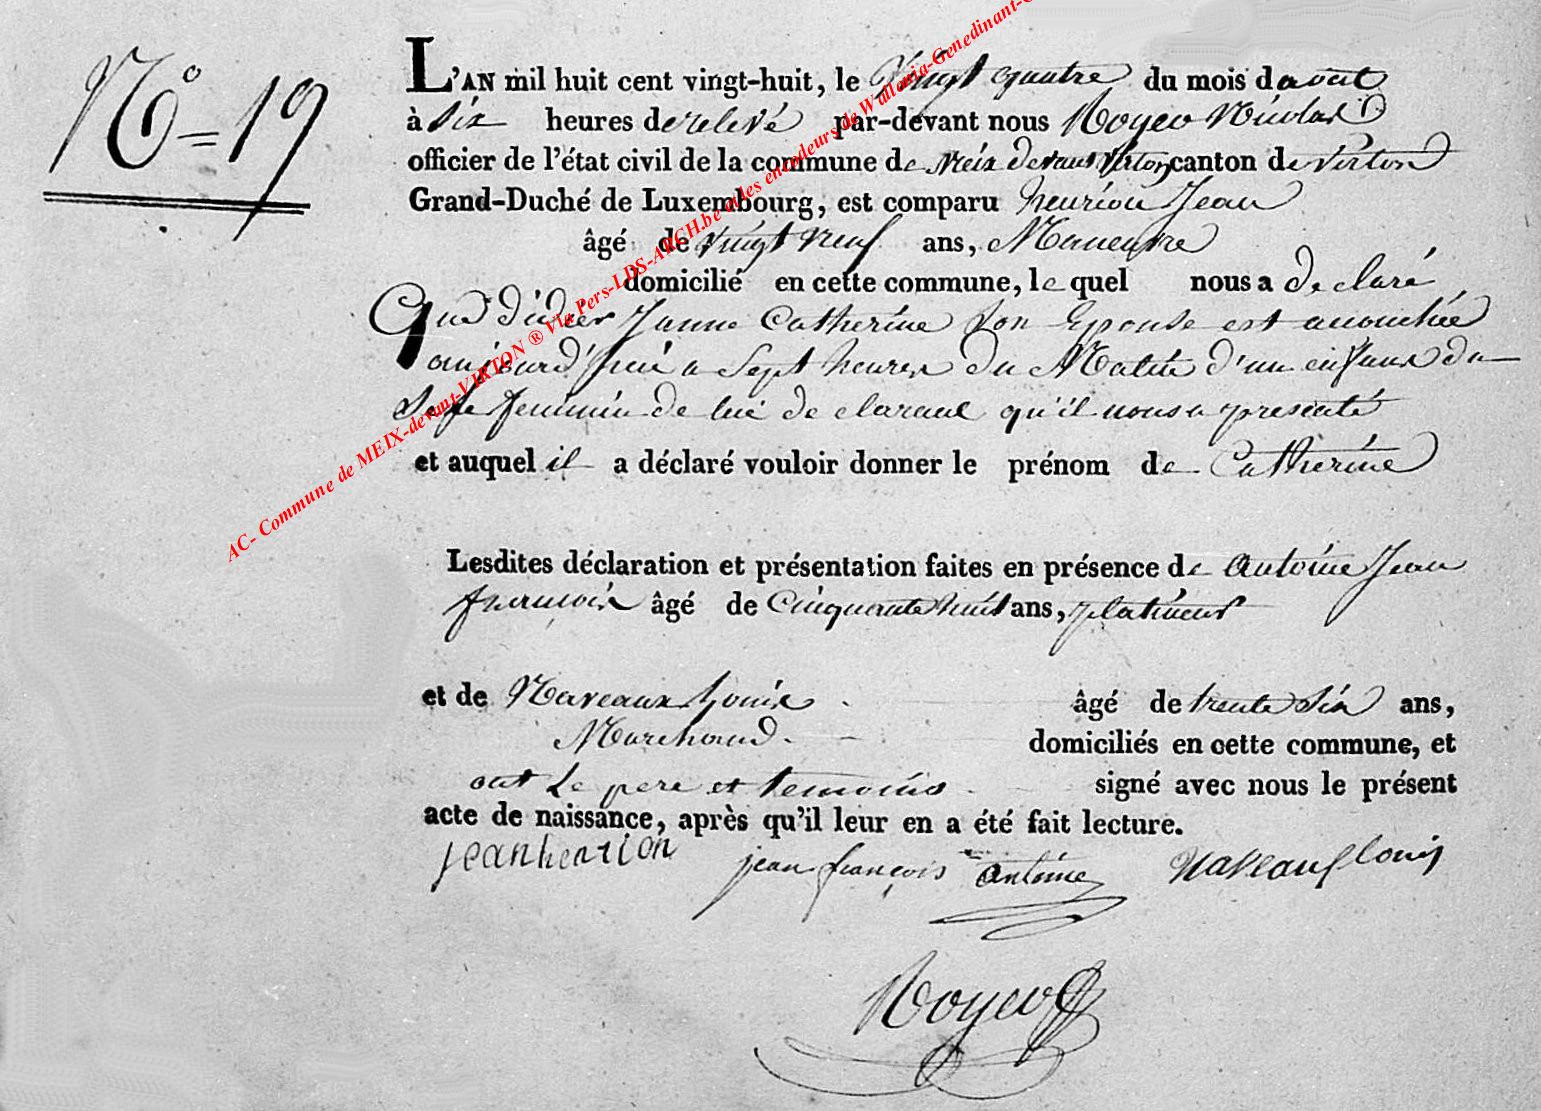 N° = 19
L'AN mil huit cent vingt-huit, le Vingt quatre du mois daout
à Six heures de relevé par-devant nous Noyeo Nicolas
officier de l'état civil de la commune de Meix devant Virton canton de Virton
Grand-Duché de Luxembourg, est comparu henrion Jean
âgé de vingt neuf ans, Maneuvre
domicilié en cette commune, le quel nous a declaré
Que didier Janne Catherine Son Epouse est accouchée
aujourd'huit a Sept heures du Matin d'un enfant du
Sexe feminin de lui declarant qu'il nous a presenté
et auquel il a déclaré vouloir donner le prénom de Catherine
Lesdites déclaration et présentation faites en présence de Antoine Jean
francois âgé de Cinquante huit ans, platineur
et de Naveaux Louis âgé de trente Six ans,
Marchand domiciliés en cette commune, et
ont Le pere et temoins signé avec nous le présent
acte de naissance, après qu'il leur en a été fait lecture.
jean henrion jean françois antoine Naveaux louis
Noyeo
AC- Commune de MEIX-devant-VIRTON ® Via Pers-LDS-ARCH.be et les encodeurs de Wallonia-Genedinant-